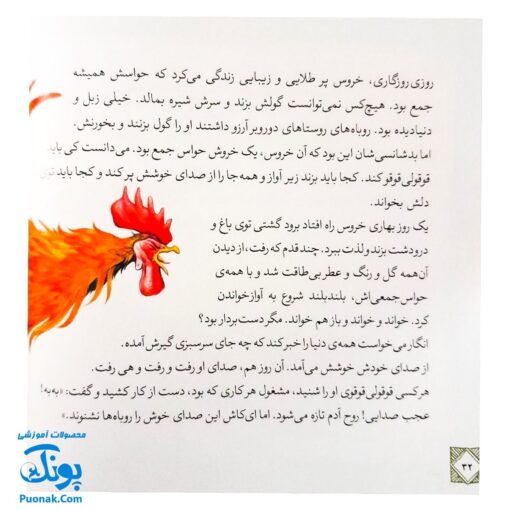 روزی روزگاری، خروس پر طلایی و زیبایی زندگی می‌کرد که حواسش همیشه
جمع بود. هیچ‌کس نمی‌توانست گولش بزند و سرش شیره بمالد. خیلی زبل و
دنیادیده بود. روباه‌های روستاهای دوروبر آرزو داشتند او را گول بزنند و بخورنش.
اما بدشانسی‌شان این بود که آن خروس، یک خروش حواس جمع بود. می‌دانست کی باید
قوقولی‌قوقو کند. کجا باید بزند زیر آواز و همه‌جا را از صدای خوشش پر کند و کجا باید توی
دلش بخواند.
یک روز بهاری خروس راه افتاد برود گشتی توی باغ و
درودشت بزند و لذت ببرد. چند قدم که رفت، از دیدن
آن‌همه گل و رنگ و عطر بی‌طاقت شد و با همه‌ی
حواس‌جمعی‌اش، بلندبلند شروع به آوازخواندن
کرد. خواند و خواند و باز هم خواند. مگر دست‌بردار بود؟
انگار می‌خواست همه‌ی دنیا را خبر کند که چه جای سرسبزی گیرش آمده.
از صدای خودش خوشش می‌آمد. آن روز هم، صدای او رفت و رفت و هی رفت.
هرکسی قوقولی‌قوقوی او را شنید، مشغول هر کاری که بود، دست از کار کشید و گفت: «به‌به!
عجب صدایی! روح آدم تازه می‌شود. اما ای‌کاش این صدای خوش را روباه‌ها نشنوند.»
۳۲
محصولات آموزشی
پونک
Puonak.Com